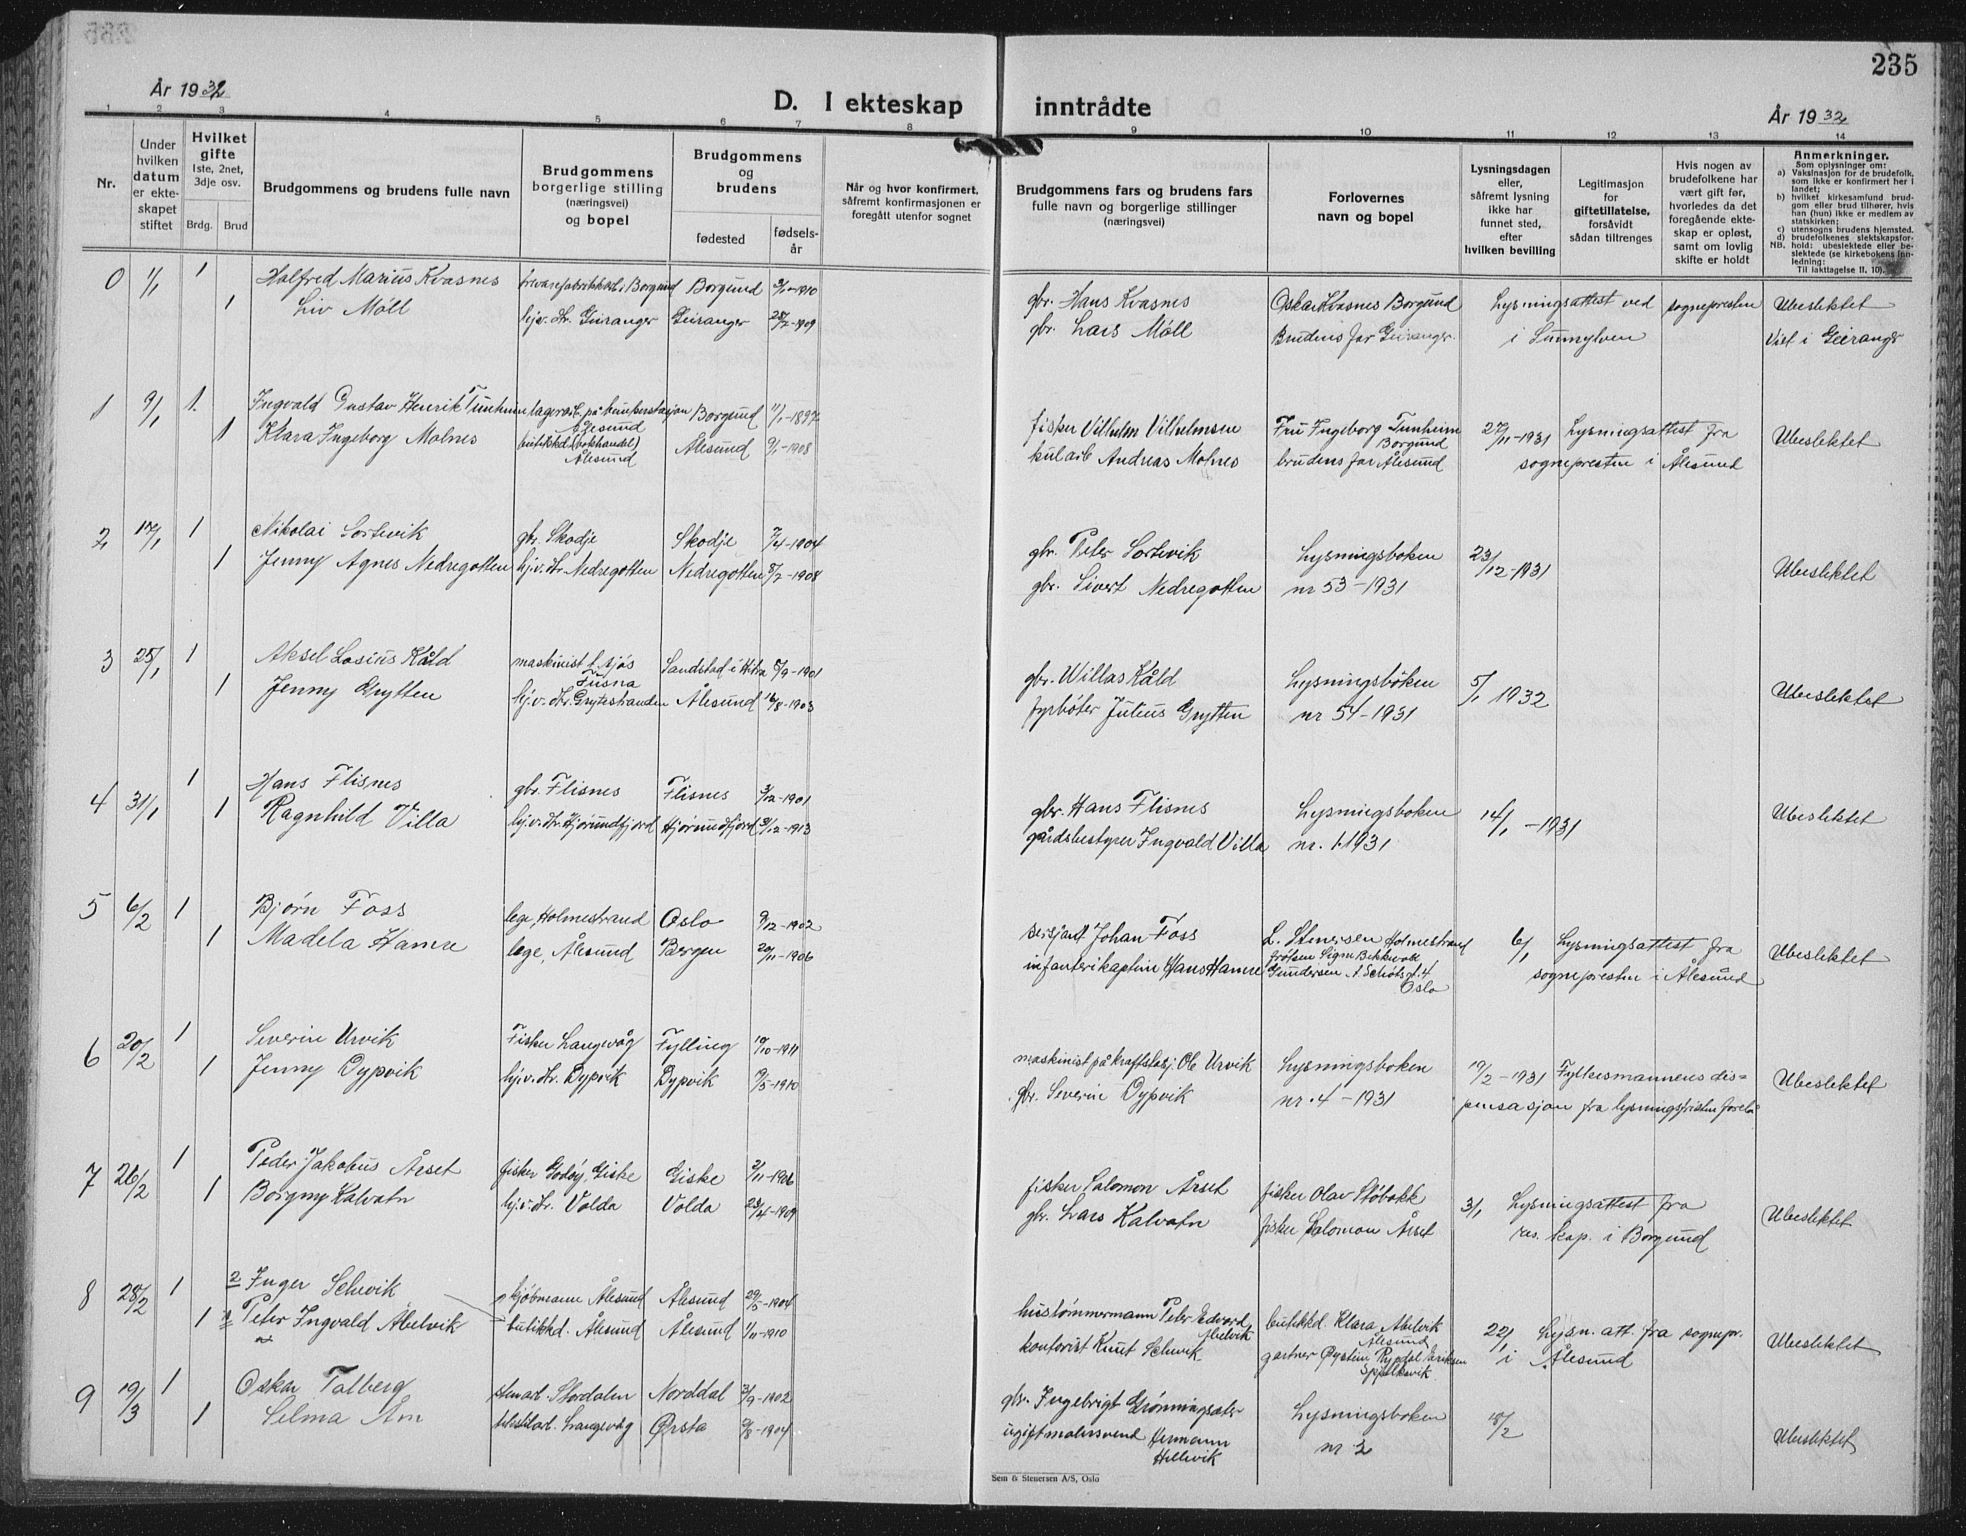 235
År 1932
D. I ekteskap inntrådte
År 1932
1 2 3 4 5 6 7 8 9 10 11 12 13 14
Nr.
Under hvilken datum er ekte-skapet stiftet
Hvilket gifte
1ste, 2net, 3dje osv.
Brdg. Brud
Brudgommens og brudens fulle navn
Brudgommens borgerlige stilling (næringsvei) og bopel
Brudgommens og brudens
fødested
fødsels-år
Når og hvor konfirmert, såfremt konfirmasjonen er foregått utenfor sognet
Brudgommens fars og brudens fars fulle navn og borgerlige stillinger (næringsvei)
Forlovernes navn og bopel
Lysningsdagen eller, såfremt lysning ikke har funnet sted, efter hvilken bevilling
Legitimasjon for giftetillatelse, forsåvidt sådan tiltrenges
Hvis nogen av brudefolkene har vært gift før, hvorledes da det foregående ekte-skap er opløst, samt om lovlig skifte er holdt
Anmerkninger.
Som oplysninger om:
a) Vaksinasjon for de brudefolk, som ikke er konfirmert her i landet;
b) hvilket kirkesamfund brud-gom eller brud tilhører, hvis han (hun) ikke er medlem av statskirken;
c) utensogns brudens hjemsted.
d) brudefolkenes slektskapsfor-hold: ubeslektede eller be-slektede (se kirkebokens Inn-ledning:
NB. Til iakttagelse II, 10).
0 1/1 1 Halfred Marius Kvasnes Borgund Borgund 1910 gbr. Hans Kvasnes Oskar Kvasnes Borgund Lysningsattest ved sognepresten Ubeslektet
1 Liv Möll hjv. dr. Geiranger Geiranger 28/2-1909 gbr. Lars Möll Brudens far Geiranger i Sunnylven Viet i Geiranger
1 9/1 1 Ingvald Gustav Henrik Tunheim Ålesund Borgund 11/1-1897 fisker Vilhelm Vilhelmsen Fru Ingeborg Tunheim Borgund 27/11-1931 Lysningsattest fra Ubeslektet
1 Klara Ingeborg Molnes butikkd. (bokhandel) Ålesund Ålesund 9/1-1908 kularb Andreas Molnes brudens far Ålesund sognepresten i Ålesund
2 17/1 1 Nikolai Sortevik gbr. Skodje Skodje 7/4-1904 gbr. Peter Sortevik Lysningsboken 23/12-1931 Ubeslektet
1 Jenny Agnes Nedregotten hj.v. dr. Nedregotten Nedregotten 8/2-1908 gbr. Sivert Nedregotten nr 53-1931
3 25/1 1 Aksel Losius Kåld maskinist t. sjøs Fusna Sandstad i Hitra 8/9-1901 gbr. Willas Kåld Lysningsboken 5/1 1932 Ubeslektet
1 Jenny Grytten hj.v. dr. Grytestranden Ålesund 16/8-1903 fyrbøter Julius Grytten nr 54-1931
4 31/1 1 Hans Flisnes gbr. Flisnes Flisnes 3/12-1901 gbr. Hans Flisnes Lysningsboken 14/1-1931 Ubeslektet
1 Ragnhild Villa hj.v. dr. Hjørundfjord Hjørundfjord 3/12-1913 gårdsbestyrer Ingvald Villa nr. 1 1931
5 6/2 1 Bjørn Foss lege, Holmestrand Oslo 9/12-1902 sersjant Johan Foss L. Stenersen Holmestrand 6/1 Lysningsattest fra Ubeslektet
1 Madela Hamre lege, Ålesund Bergen 20/11-1906 infanterikaptein Hans Hamre frøken Signe Gundersen Oslo sognepresten i Ålesund
6 20/2 1 Severin Urvik Fisker Langevåg Fylling 10/10-1911 maskinist på kraftstasj. Ole Urvik Lysningsboken 19/2-1931 Fylkesmannens dis= Ubeslektet
1 Jenny Dypvik hj.v. dr. Dypvik Dypvik 9/5-1910 gbr. Severin Dypvik nr. 4-1931 pensasjon fra lysningsfristen
7 26/2 1 Peder Jakobus Årset fisker Godøy, Giske Giske 2/11-1906 fisker Salomon Årset fisker Olav Støbakk 3/1 Lysningsattest fra Ubeslektet
1 Borgny Kalvatn hj.v. dr. Volda Volda 23/4-1909 gbr. Lars Kalvatn fisker Salomon Årset res. kap. i Borgund
8 28/2 1 2 Inger Selvik kjøbmann Ålesund Ålesund 29/5-1904 hustømmermann Peter Edvard Abelvik butikkd. Klara Abelvik Ålesund 22/1 Lysn. att. fra sognepr. Ubeslektet
1 1 Peter Ingvald Abelvik butikkd. Ålesund Ålesund 1/11-1910 kontorist Knut Selvik gartner Øystein Rypdal Eriksen Spjelkavik i Ålesund
9 19/3 1 Oskar Talberg Stordalen Norddal 3/9-1902 gbr. Ingebrigt Grønningsæter Lysningsboken 18/2 Ubeslektet
1 Selma Åm tekstilarb. Langevåg Ørsta 9/8-1904 ugift malersvend Hermann Hellevik nr 2
Sem & Stenersen A/S, Oslo